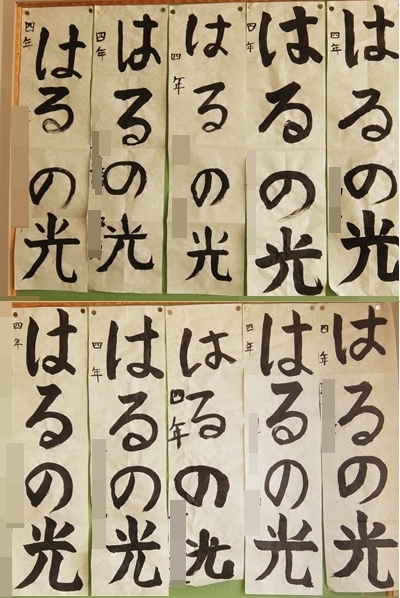 はるの光
四年
はるの光
四年
はるの光
四年
はるの光
四年
はるの光
四年
はるの光
四年
はるの光
四年
はるの光
四年
はるの光
四年
はるの光
四年